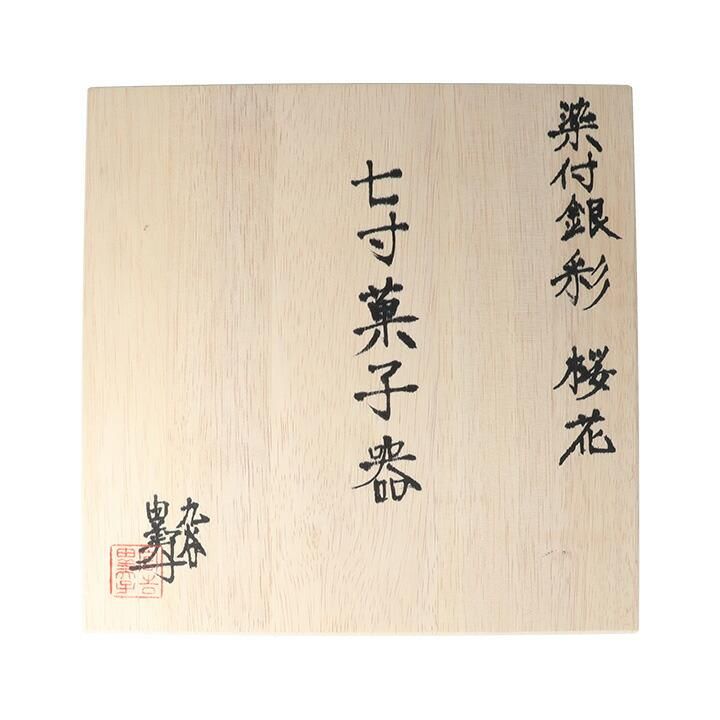 染付銀彩 桜花
七寸菓子器
九谷
由美子